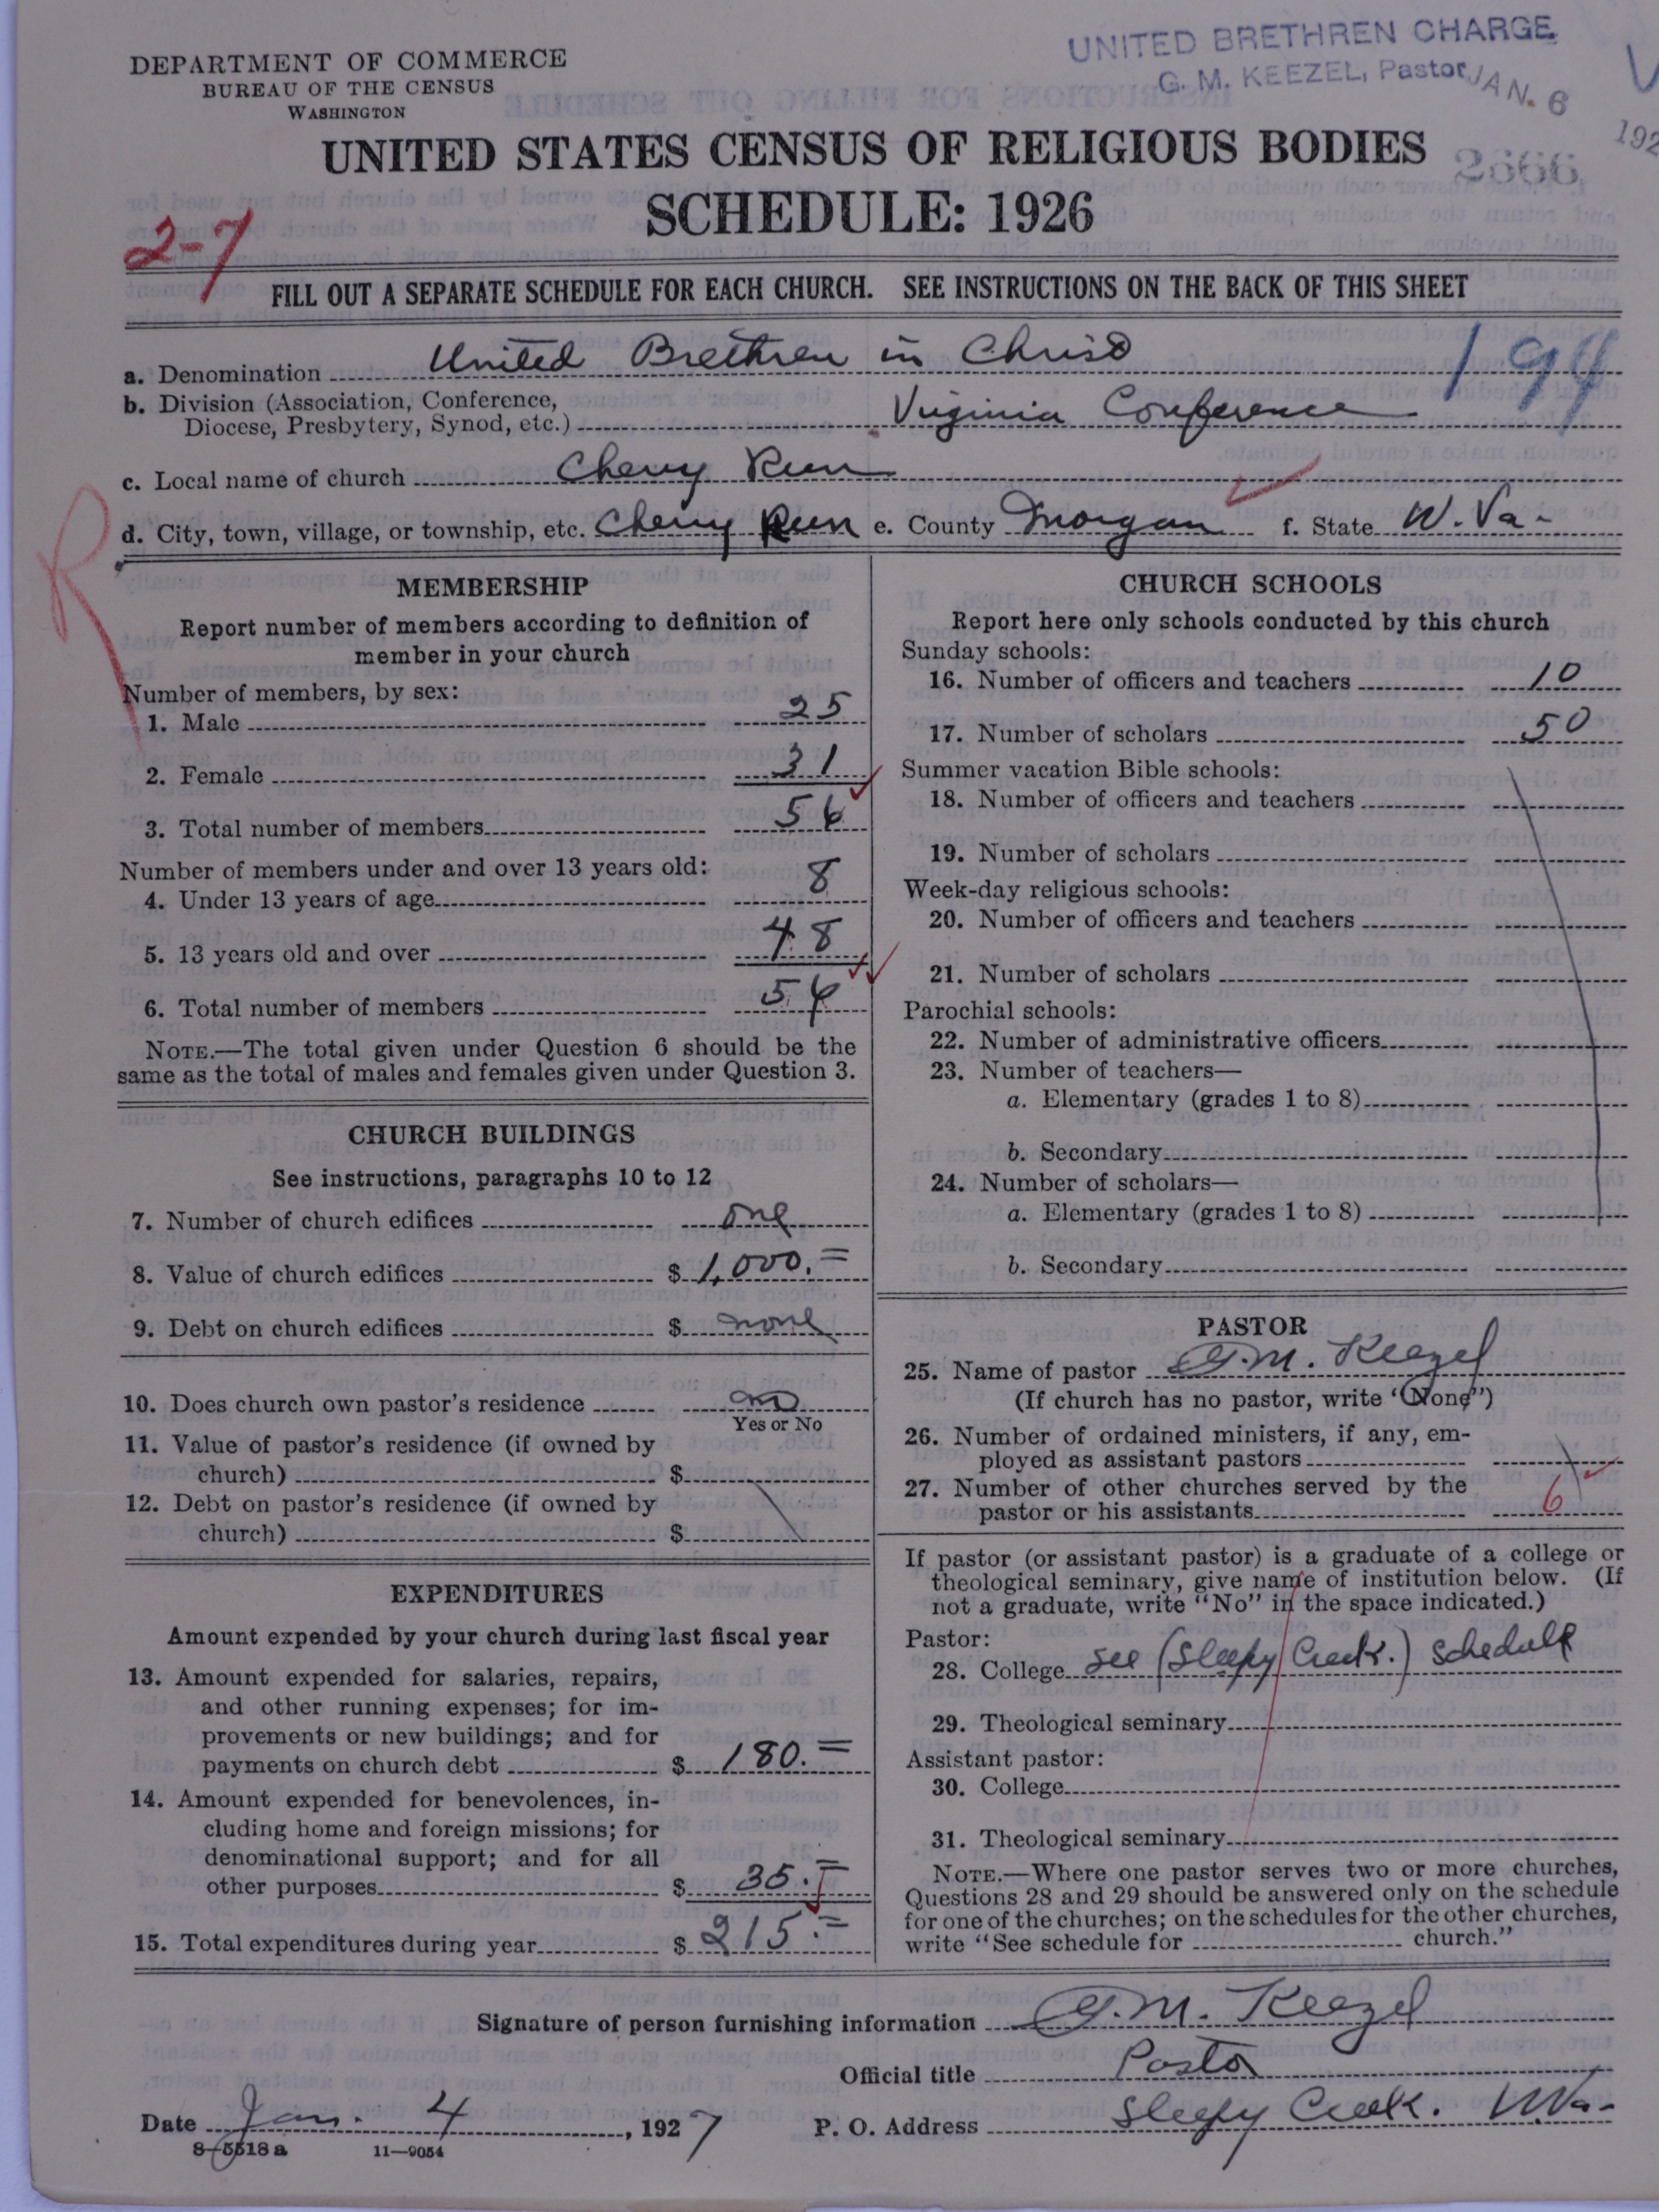 UNITED BRETHREN CHARGE
G. M. KEEZEL, Pastor
JAN. 6
192
DEPARTMENT OF COMMERCE
BUREAU OF THE CENSUS
WASHINGTON
UNITED STATES CENSUS OF RELIGIOUS BODIES
2666
SCHEDULE: 1926
2-7
FILL OUT A SEPARATE SCHEDULE FOR EACH CHURCH. SEE INSTRUCTIONS ON THE BACK OF THIS SHEET
a. Denomination United Brethren in Christ
199
b. Division (Association, Conference,
Diocese, Presbytery, Synod, etc.) Virginia Conference
c. Local name of church Cherry Run
d. City, town, village, or township, etc. Cherry Run e. County Morgan f. State W. Va.
R
MEMBERSHIP
Report number of members according to definition of
member in your church
Number of members, by sex:
1. Male 25
2. Female 31
3. Total number of members 56
Number of members under and over 13 years old:
4. Under 13 years of age 8
5. 13 years old and over 48
6. Total number of members 56
NOTE.—The total given under Question 6 should be the
same as the total of males and females given under Question 3.
CHURCH BUILDINGS
See instructions, paragraphs 10 to 12
7. Number of church edifices one
8. Value of church edifices $ 1,000.=
9. Debt on church edifices $ none
10. Does church own pastor's residence no
Yes or No
11. Value of pastor's residence (if owned by
church) $
12. Debt on pastor's residence (if owned by
church) $
EXPENDITURES
Amount expended by your church during last fiscal year
13. Amount expended for salaries, repairs,
and other running expenses; for im-
provements or new buildings; and for
payments on church debt $ 180.=
14. Amount expended for benevolences, in-
cluding home and foreign missions; for
denominational support; and for all
other purposes $ 35.=
15. Total expenditures during year $ 215.=
CHURCH SCHOOLS
Report here only schools conducted by this church
Sunday schools:
16. Number of officers and teachers 10
17. Number of scholars 50
Summer vacation Bible schools:
18. Number of officers and teachers
19. Number of scholars
Week-day religious schools:
20. Number of officers and teachers
21. Number of scholars
Parochial schools:
22. Number of administrative officers
23. Number of teachers—
a. Elementary (grades 1 to 8)
b. Secondary
24. Number of scholars—
a. Elementary (grades 1 to 8)
b. Secondary
PASTOR
25. Name of pastor G. M. Keezel
(If church has no pastor, write "None")
26. Number of ordained ministers, if any, em-
ployed as assistant pastors
27. Number of other churches served by the
pastor or his assistants 6
If pastor (or assistant pastor) is a graduate of a college or
theological seminary, give name of institution below. (If
not a graduate, write "No" in the space indicated.)
Pastor:
28. College see (Sleepy Creek.) schedule
29. Theological seminary
Assistant pastor:
30. College
31. Theological seminary
NOTE.—Where one pastor serves two or more churches,
Questions 28 and 29 should be answered only on the schedule
for one of the churches; on the schedules for the other churches,
write "See schedule for church."
Signature of person furnishing information G. M. Keezel
Official title Pastor
Date Jan. 4, 1927 P. O. Address Sleepy Creek. W. Va.
8-5518 a 11-9054